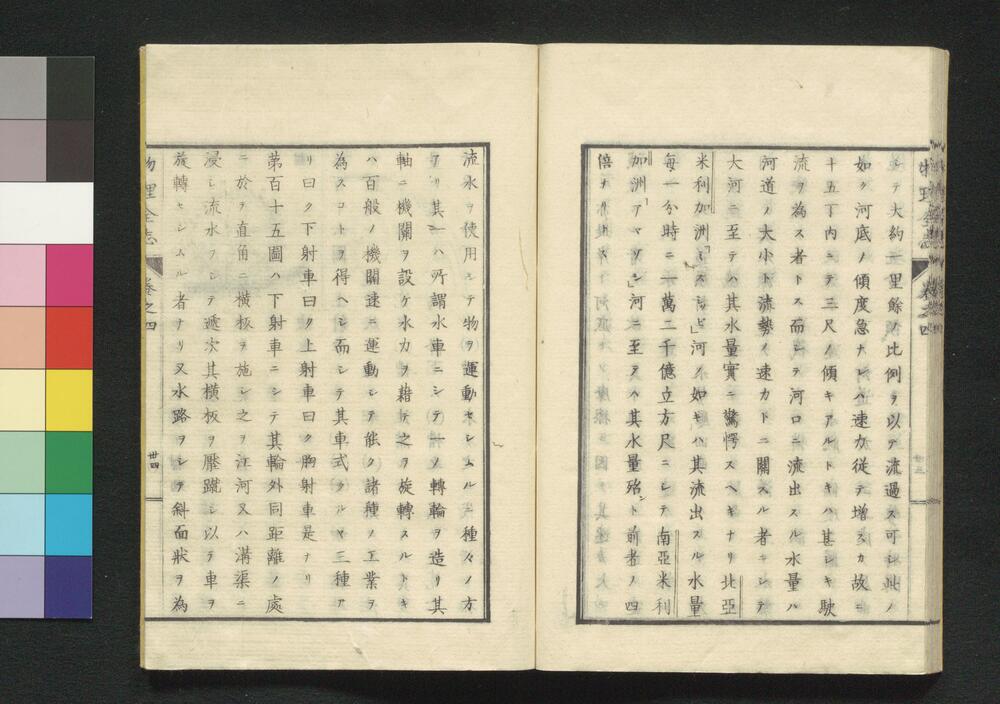 シテ大約一里餘ノ比例ヲ以テ流過ス可シ此ノ
如ク河底ノ傾度急ナレハ速力従テ増スカ故ニ
十五丁内ニテ三尺ノ傾キアルトキハ甚シキ駛
流ヲ為ス者トス而シテ河口ニ流出スル水量ハ
河道ノ大小ト流勢ノ速力トニ關スル者ニシテ
大河ニ至テハ其水量實ニ驚愕スヘキナリ北亞
米利加洲「ミスシピ」河ノ如キハ其流出スル水量
每一分時ニ一萬二千億立方尺ニシテ南亞米利
加洲「アマゾン」河ニ至テハ其水量殆ント前者ノ四
倍ナリ
物理全志 卷之四
流水ヲ使用シテ物ヲ運動セシムルニ種々ノ方
アリ其一ハ所謂水車ニシテ一ノ轉輪ヲ造リ其
軸ニ機關ヲ設ケ水力ヲ藉テ之ヲ旋轉スルトキ
ハ百般ノ機關速ニ運動シテ能ク諸種ノ工業ヲ
為スコトヲ得ヘシ而シテ其車式タルヤ三種ア
リ曰ク下射車曰ク上射車曰ク胸射車是ナリ
第百十五圖ハ下射車ニシテ其輪外同距離ノ處
ニ於テ直角ニ橫板ヲ施シ之ヲ江河又ハ溝渠ニ
浸シ流水ヲシテ遞次其橫板ヲ壓蹴シ以テ車ヲ
旋轉セシムル者ナリ又水路ヲシテ斜面狀ヲ為
物理全志 卷之四
廿四